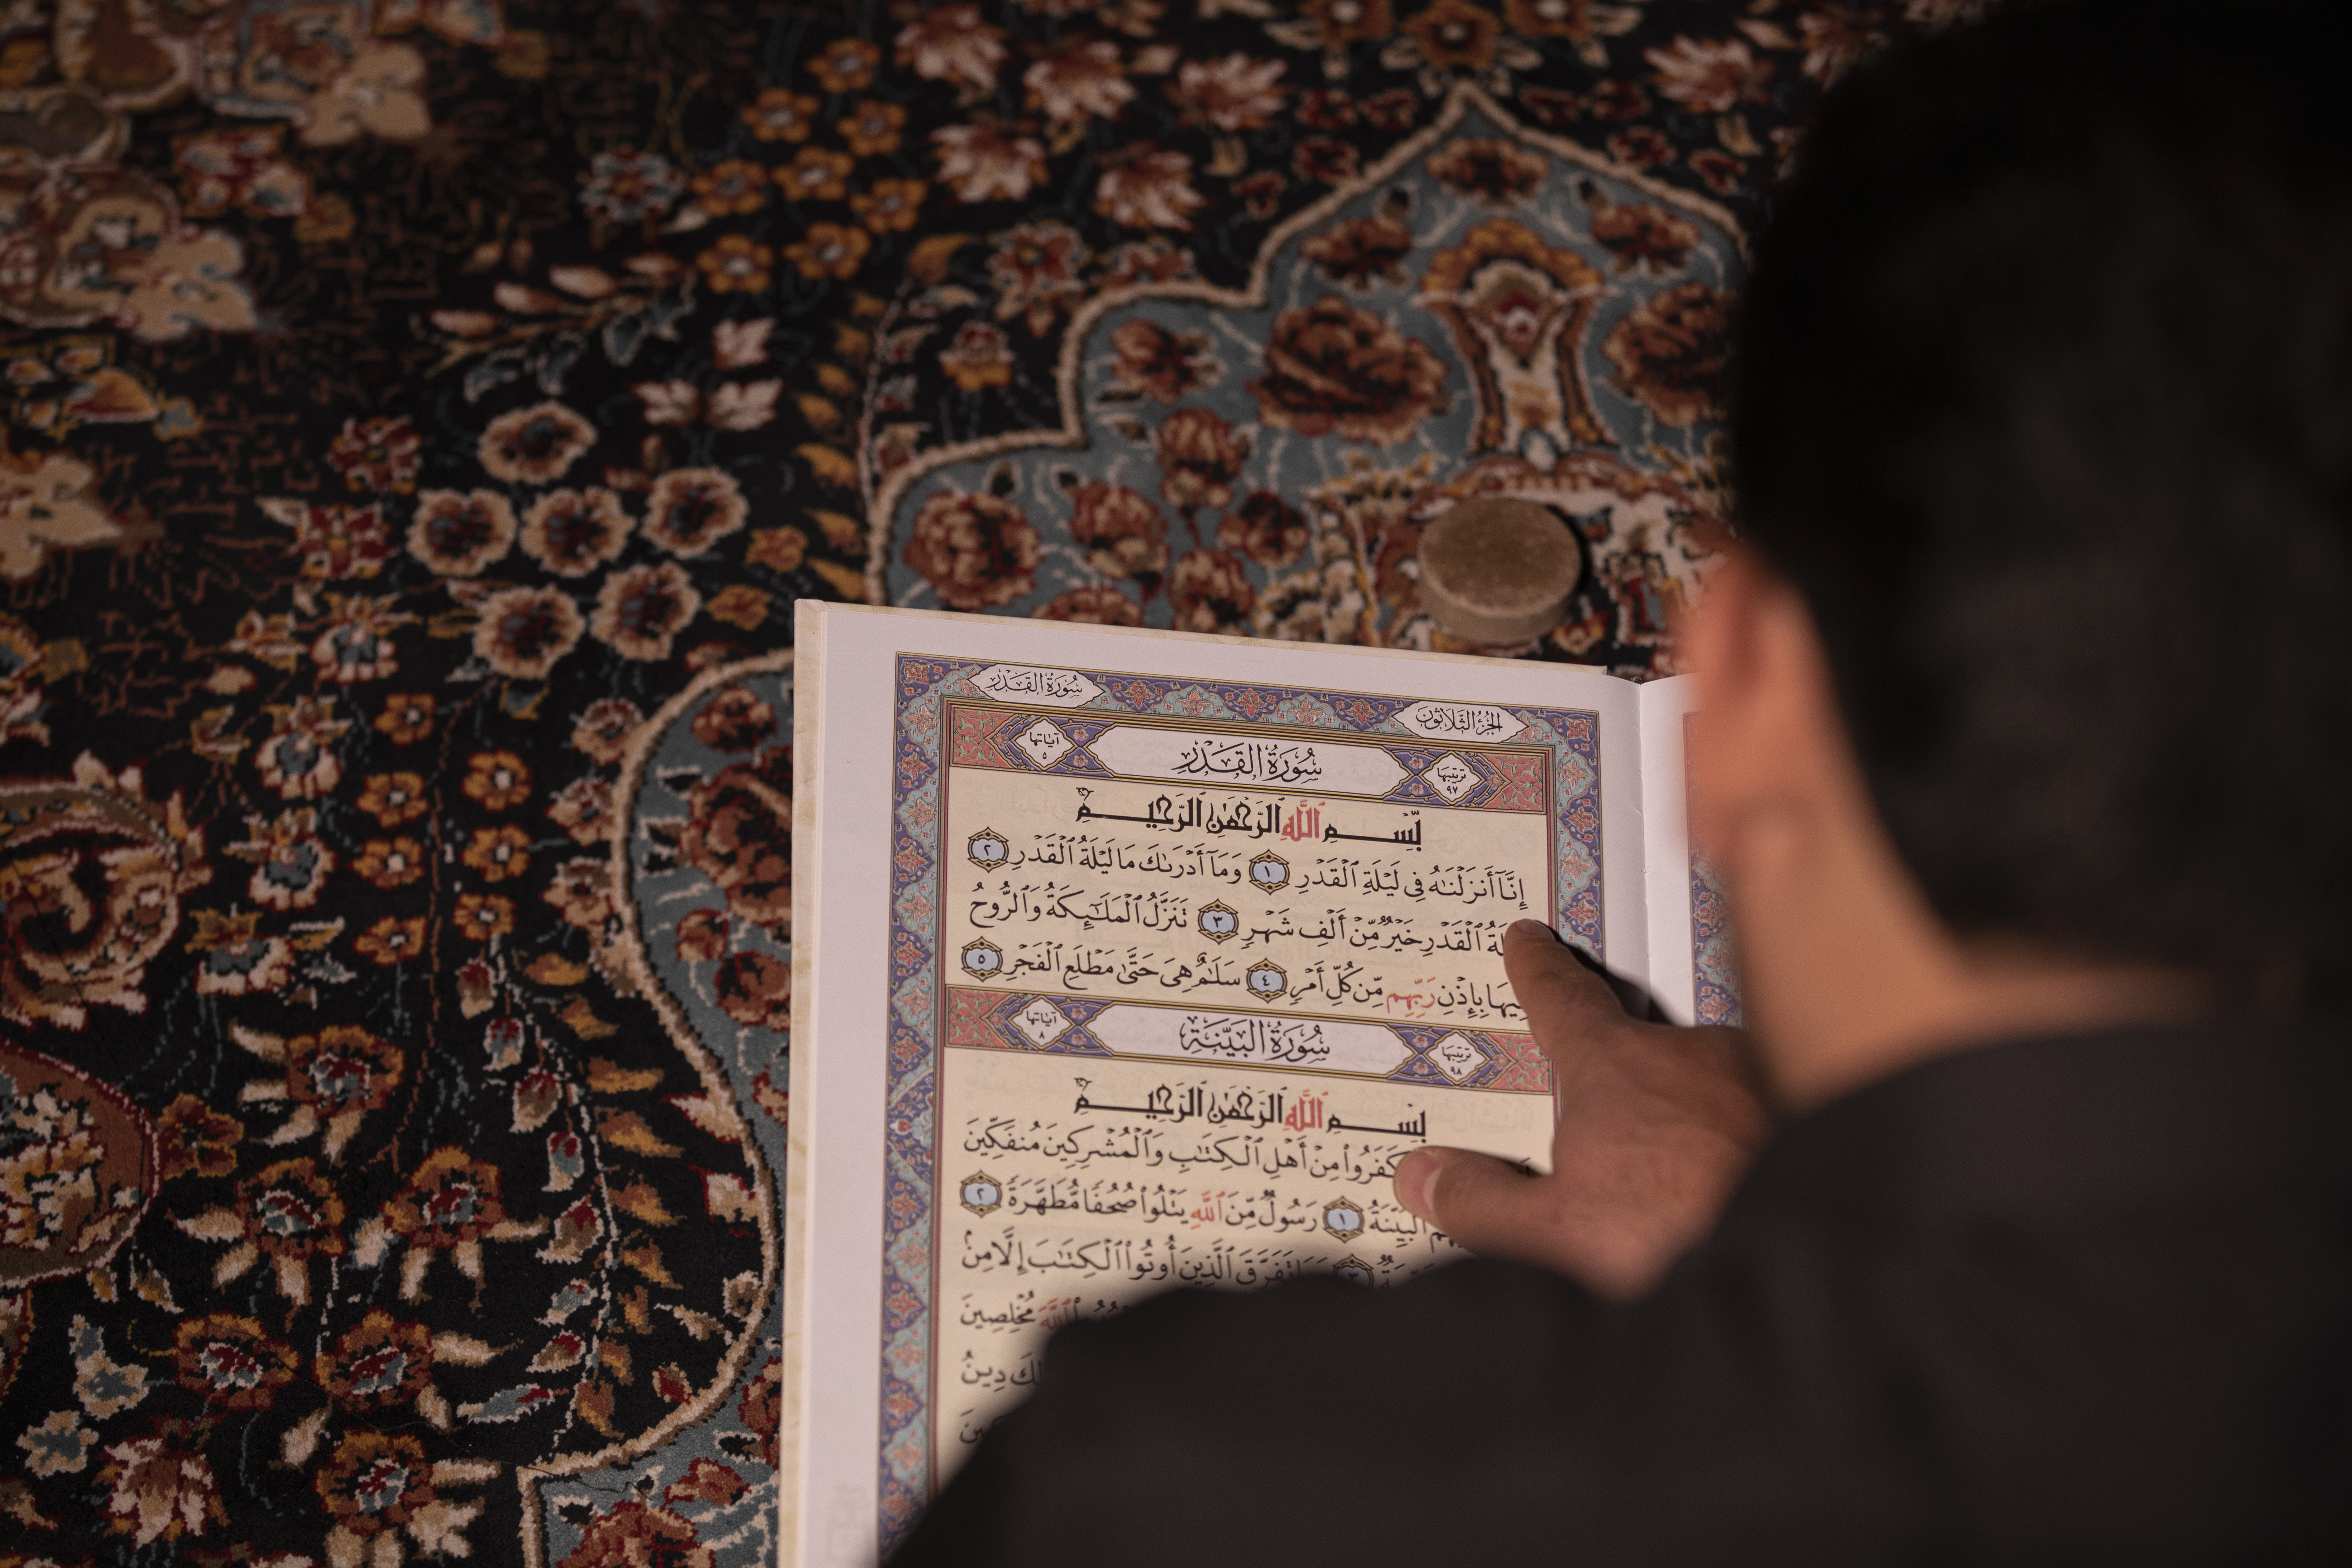 سُورَةُ القَدْرِ
الجُزْءُ الثَّلَاثُونَ
ترتيبها ٩٧
سُورَةُ القَدْرِ
آياتها ٥
بِّسْمِ ٱللَّهِ ٱلرَّحْمَٰنِ ٱلرَّحِيمِ
إِنَّآ أَنزَلْنَٰهُ فِى لَيْلَةِ ٱلْقَدْرِ ١ وَمَآ أَدْرَىٰكَ مَا لَيْلَةُ ٱلْقَدْرِ ٢
ٱلْقَدْرِ خَيْرٌ مِّنْ أَلْفِ شَهْرٍ ٣ تَنَزَّلُ ٱلْمَلَٰٓئِكَةُ وَٱلرُّوحُ
فِيهَا بِإِذْنِ رَبِّهِم مِّن كُلِّ أَمْرٍ ٤ سَلَٰمٌ هِىَ حَتَّىٰ مَطْلَعِ ٱلْفَجْرِ ٥
ترتيبها ٩٨
سُورَةُ البَيِّنَةِ
آياتها ٨
بِسْمِ ٱللَّهِ ٱلرَّحْمَٰنِ ٱلرَّحِيمِ
كَفَرُوا۟ مِنْ أَهْلِ ٱلْكِتَٰبِ وَٱلْمُشْرِكِينَ مُنفَكِّينَ
ٱلْبَيِّنَةُ ١ رَسُولٌ مِّنَ ٱللَّهِ يَتْلُوا۟ صُحُفًا مُّطَهَّرَةً ٢
تَفَرَّقَ ٱلَّذِينَ أُوتُوا۟ ٱلْكِتَٰبَ إِلَّا مِنۢ
ٱللَّهَ مُخْلِصِينَ
دِينُ